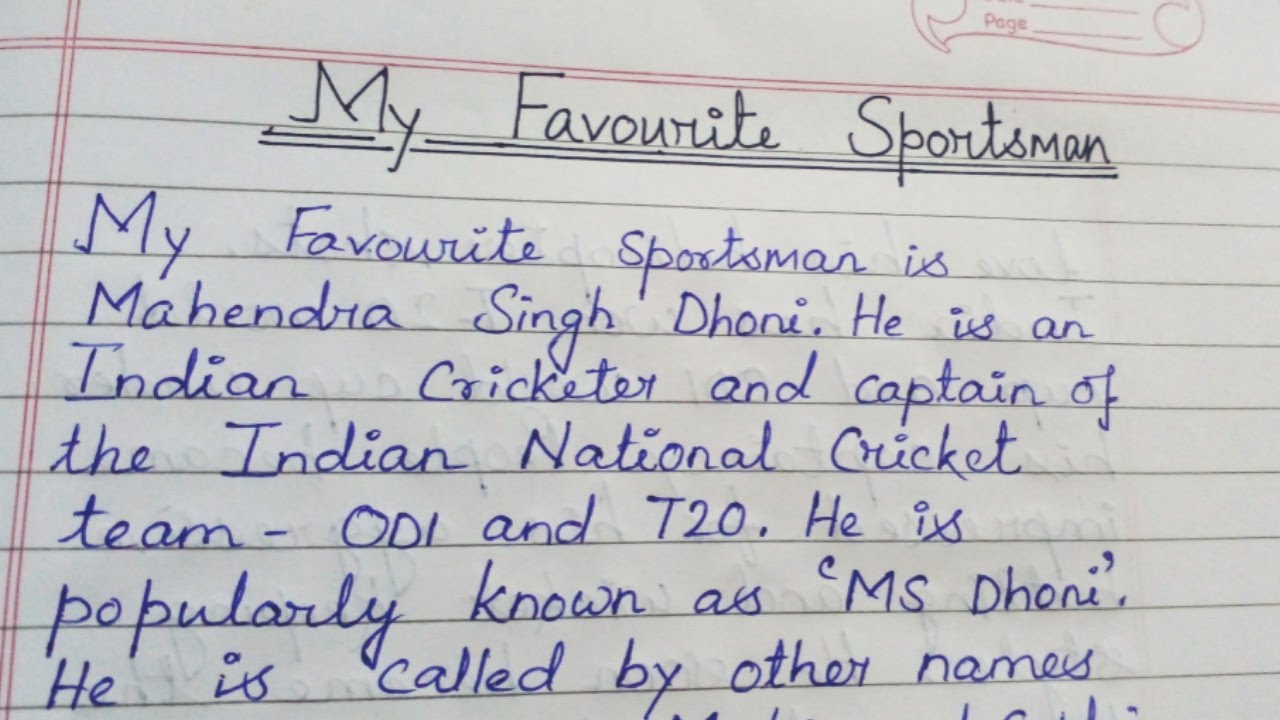 Page
My Favourite Sportsman
My Favourite Sportsman is
Mahendra Singh Dhoni. He is an
Indian Cricketer and captain of
the Indian National Cricket
team - ODI and T20. He is
popularly known as 'MS Dhoni'.
He is called by other names